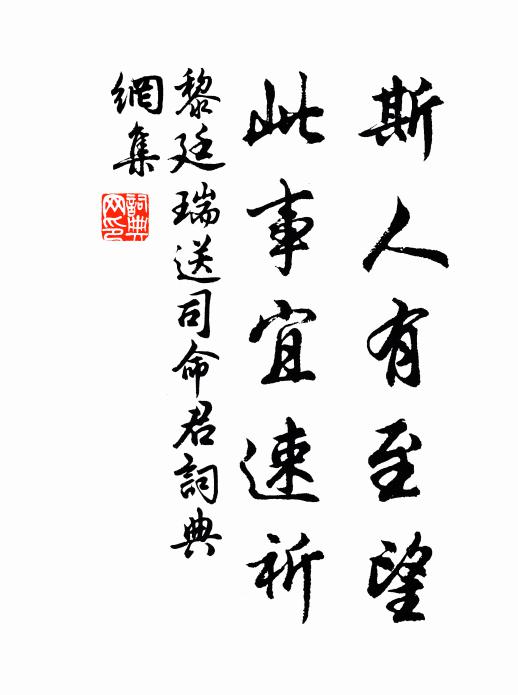 斯人有至望
此事宜速祈
黎廷瑞送司命君詞典
網集
詞典网印